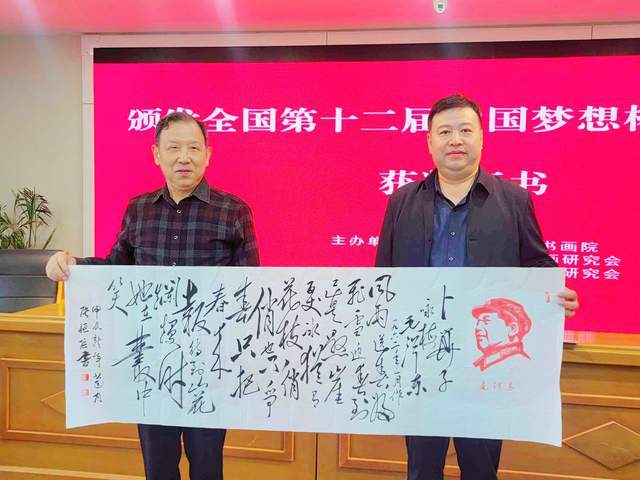 颁发全国第十二届 国梦想
获 书
主办单 书画院
画研究会
研究会
卜算子
咏梅
毛泽东
风雨送春归
飞雪迎春到
已是悬崖
百丈冰犹有
花枝俏
俏也不争
春只把
春来
报待到山花
烂漫时
她在丛中
笑
甲辰龙年
毛泽东